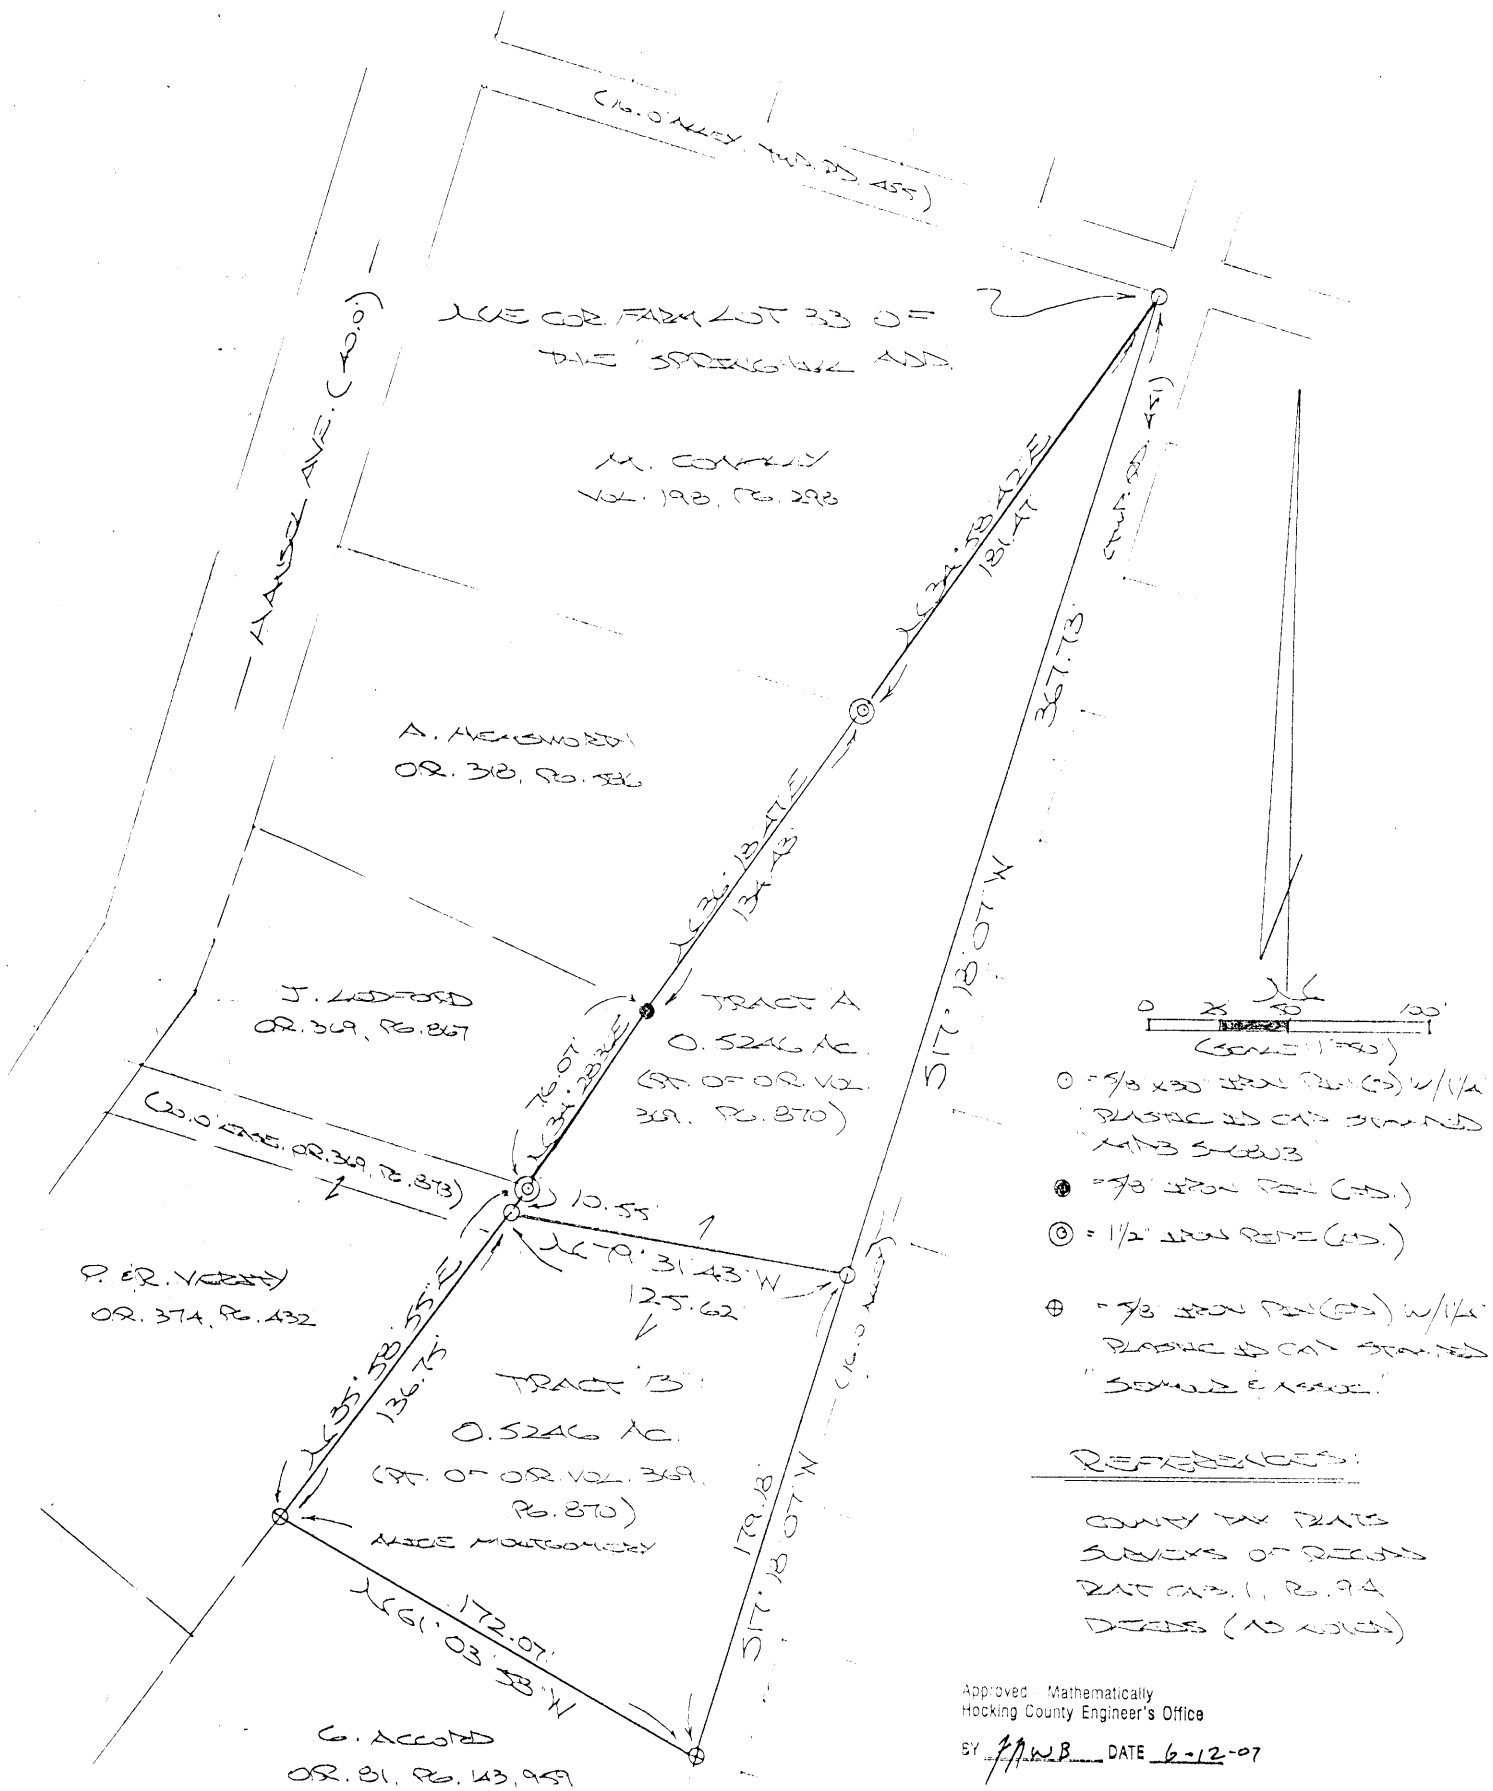 (16.0' ALLEY, TWP. RD. 455)
MANSEL AVE. (40.0')
NE COR. FARM LOT 33 OF
THE "SPRINGHILL ADD.
M. CONKLEY
VOL. 198, PG. 298
N 34° 58' 42" E
181.47'
(TWP. RD. 451)
367.73'
S 17° 18' 07" W
A. HEMSWORTH
OR. 318, PG. 586
N 36° 18' 47" E
134.43'
J. LEDFORD
OR. 369, PG. 867
TRACT "A"
0.5246 AC.
(PT. OF OR. VOL.
369, PG. 870)
76.07'
N 34° 28' 36" E
(20.0' ESMT. OR. 369, PG. 873)
10.55'
N 79° 31' 43" W
125.62'
P. & R. VERITY
OR. 374, PG. 432
N 35° 58' 55" E
136.75'
TRACT "B"
0.5246 AC.
(PT. OF OR. VOL. 369,
PG. 870)
ALICE MONTGOMERY
179.18'
S 17° 18' 07" W
(16.0' ALLEY)
172.07'
N 61° 03' 58" W
G. ACCORD
OR. 81, PG. 143, 959
N
0 25 50 100'
(SCALE: 1"=50')
○ = 5/8" X 30" IRON PIN (S) W/ 1 1/4"
PLASTIC ID CAP STAMPED
● = 5/8" IRON PIN (FD.)
◎ = 1 1/2" IRON PIPE (FD.)
⊕ = 5/8" IRON PIN (FD) W/ 1 1/4"
PLASTIC ID CAP STAMPED
"SEYMOUR & ASSOC."
REFERENCES:
COUNTY TAX PLATS
SURVEYS OF RECORD
PLAT CAB. 1, PG. 9A
DEEDS (AS NOTED)
Approved - Mathematically
Hocking County Engineer's Office
BY DATE 6-12-07